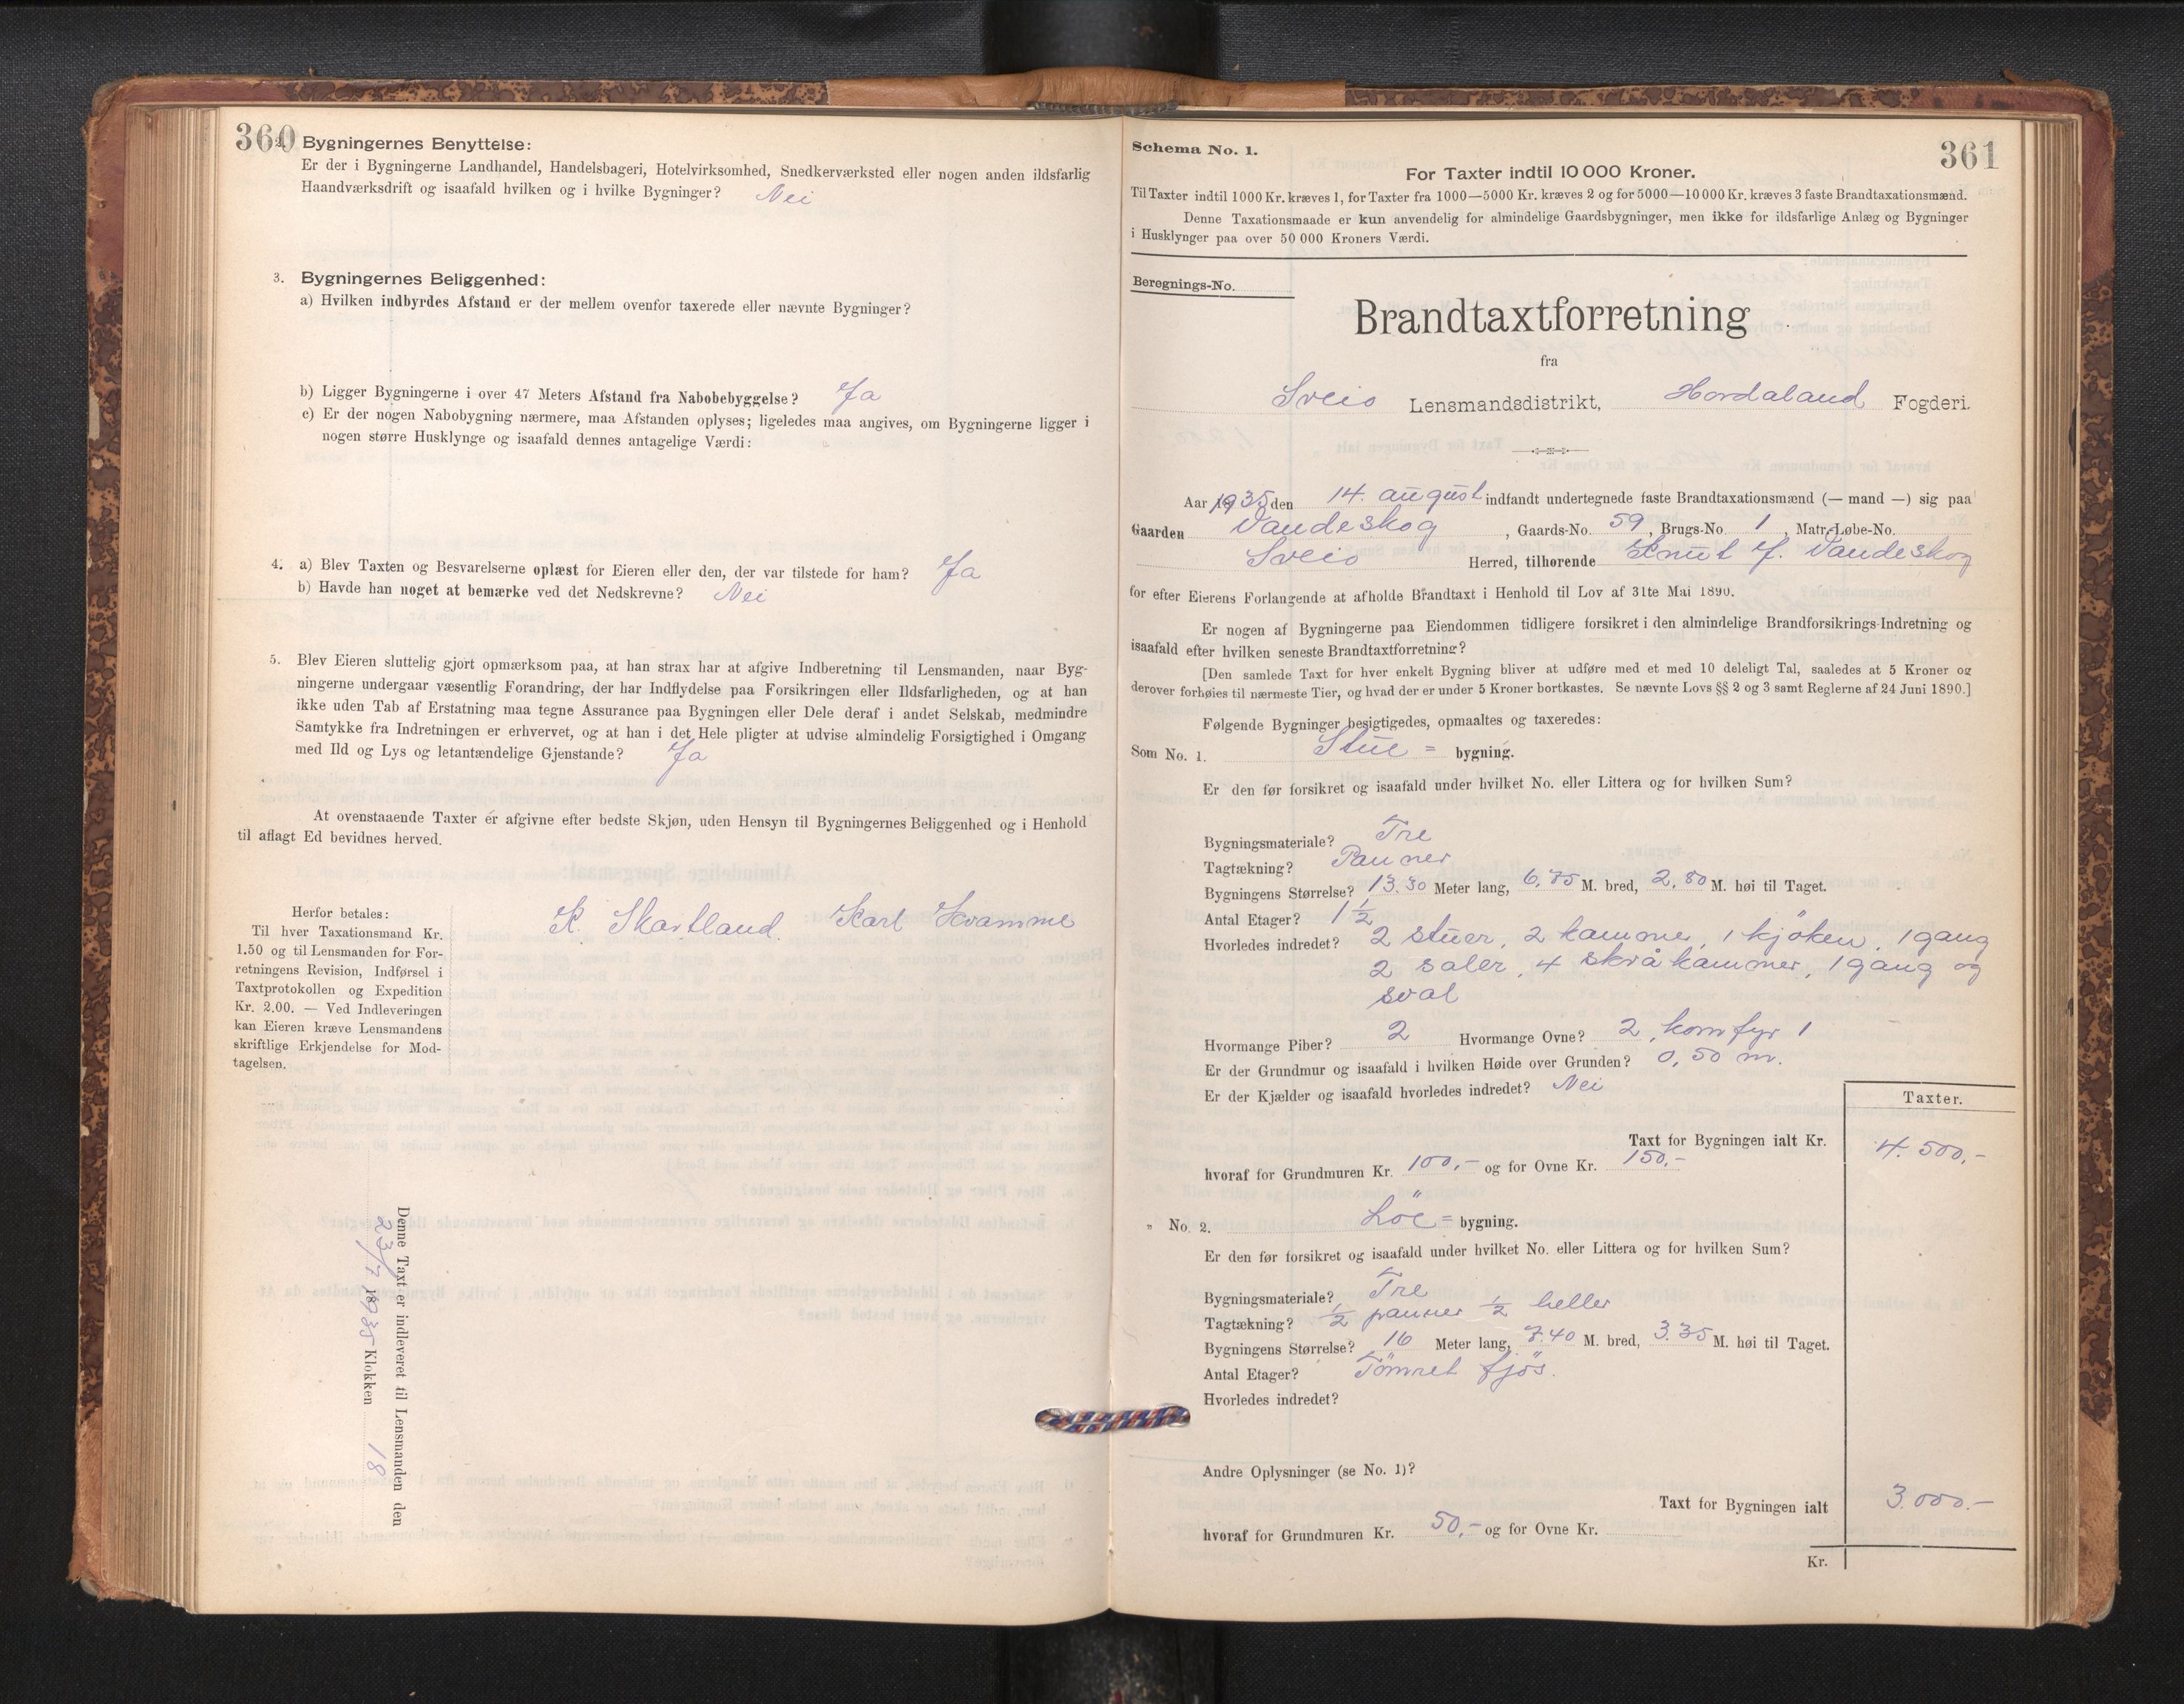 360
Bygningernes Benyttelse:
Er der i Bygningerne Landhandel, Handelsbageri, Hotelvirksomhed, Snedkerværksted eller nogen anden ildsfarlig
Haandværksdrift og isaafald hvilken og i hvilke Bygninger? Nei
3. Bygningernes Beliggenhed:
a) Hvilken indbyrdes Afstand er der mellem ovenfor taxerede eller nævnte Bygninger?
b) Ligger Bygningerne i over 47 Meters Afstand fra Nabobebyggelse? Ja
c) Er der nogen Nabobygning nærmere, maa Afstanden oplyses; ligeledes maa angives, om Bygningerne ligger i
nogen større Husklynge og isaafald dennes antagelige Værdi:
4. a) Blev Taxten og Besvarelserne oplæst for Eieren eller den, der var tilstede for ham? Ja
b) Havde han noget at bemærke ved det Nedskrevne? Nei
5. Blev Eieren sluttelig gjort opmærksom paa, at han strax har at afgive Indberetning til Lensmanden, naar Byg-
ningerne undergaar væsentlig Forandring, der har Indflydelse paa Forsikringen eller Ildsfarligheden, og at han
ikke uden Tab af Erstatning maa tegne Assurance paa Bygningen eller Dele deraf i andet Selskab, medmindre
Samtykke fra Indretningen er erhvervet, og at han i det Hele pligter at udvise almindelig Forsigtighed i Omgang
med Ild og Lys og letantændelige Gjenstande? Ja
At ovenstaaende Taxter er afgivne efter bedste Skjøn, uden Hensyn til Bygningernes Beliggenhed og i Henhold
til aflagt Ed bevidnes herved.
K. Skartland. Karl Kvamme
Herfor betales:
Til hver Taxationsmand Kr.
1.50 og til Lensmanden for For-
retningens Revision, Indførsel i
Taxtprotokollen og Expedition
Kr. 2.00. — Ved Indleveringen
kan Eieren kræve Lensmandens
skriftlige Erkjendelse for Mod-
tagelsen.
Denne Taxt er indleveret til Lensmanden den
23/7 1935 Klokken 18
Schema No. 1.
361
For Taxter indtil 10 000 Kroner.
Til Taxter indtil 1000 Kr. kræves 1, for Taxter fra 1000—5000 Kr. kræves 2 og for 5000—10 000 Kr. kræves 3 faste Brandtaxationsmænd.
Denne Taxationsmaade er kun anvendelig for almindelige Gaardsbygninger, men ikke for ildsfarlige Anlæg og Bygninger
i Husklynger paa over 50 000 Kroners Værdi.
Beregnings-No.
Brandtaxtforretning
fra
Sveio Lensmandsdistrikt, Hordaland Fogderi.
Aar 1935 den 14. august indfandt undertegnede faste Brandtaxationsmænd (— mand —) sig paa
Gaarden Vandeskog, Gaards-No. 59, Brugs-No. 1, Matr.-Løbe-No.
Sveio Herred, tilhørende Knut J. Vandeskog
for efter Eierens Forlangende at afholde Brandtaxt i Henhold til Lov af 31te Mai 1890.
Er nogen af Bygningerne paa Eiendommen tidligere forsikret i den almindelige Brandforsikrings-Indretning og
isaafald efter hvilken seneste Brandtaxtforretning?
[Den samlede Taxt for hver enkelt Bygning bliver at udføre med et med 10 deleligt Tal, saaledes at 5 Kroner og
derover forhøies til nærmeste Tier, og hvad der er under 5 Kroner bortkastes. Se nævnte Lovs §§ 2 og 3 samt Reglerne af 24 Juni 1890.]
Følgende Bygninger besigtigedes, opmaaltes og taxeredes:
Som No. 1. Stue = bygning.
Er den før forsikret og isaafald under hvilket No. eller Littera og for hvilken Sum?
Bygningsmateriale? Tre
Tagtækning? Panner
Bygningens Størrelse? 13.30 Meter lang, 6,75 M. bred, 2,80 M. høi til Taget.
Antal Etager? 1 1/2
Hvorledes indredet? 2 stuer, 2 kammer, 1 kjöken, 1 gang
2 saler, 4 skråkammer, 1 gang og
sval
Hvormange Piber? 2 Hvormange Ovne? 2, komfyr 1
Er der Grundmur og isaafald i hvilken Høide over Grunden? 0,50 m.
Er der Kjælder og isaafald hvorledes indredet? Nei
Taxter.
Taxt for Bygningen ialt Kr. 4.500,-
hvoraf for Grundmuren Kr. 100,- og for Ovne Kr. 150,-
" No. 2. Löe = bygning.
Er den før forsikret og isaafald under hvilket No. eller Littera og for hvilken Sum?
Bygningsmateriale? Tre
Tagtækning? 1/2 panner 1/2 heller
Bygningens Størrelse? 16 Meter lang, 7.40 M. bred, 3.35 M. høi til Taget.
Antal Etager? Tömret fjös.
Hvorledes indredet?
Andre Oplysninger (se No. 1)?
Taxt for Bygningen ialt 3.000.-
hvoraf for Grundmuren Kr. 50,- og for Ovne Kr.
Kr.